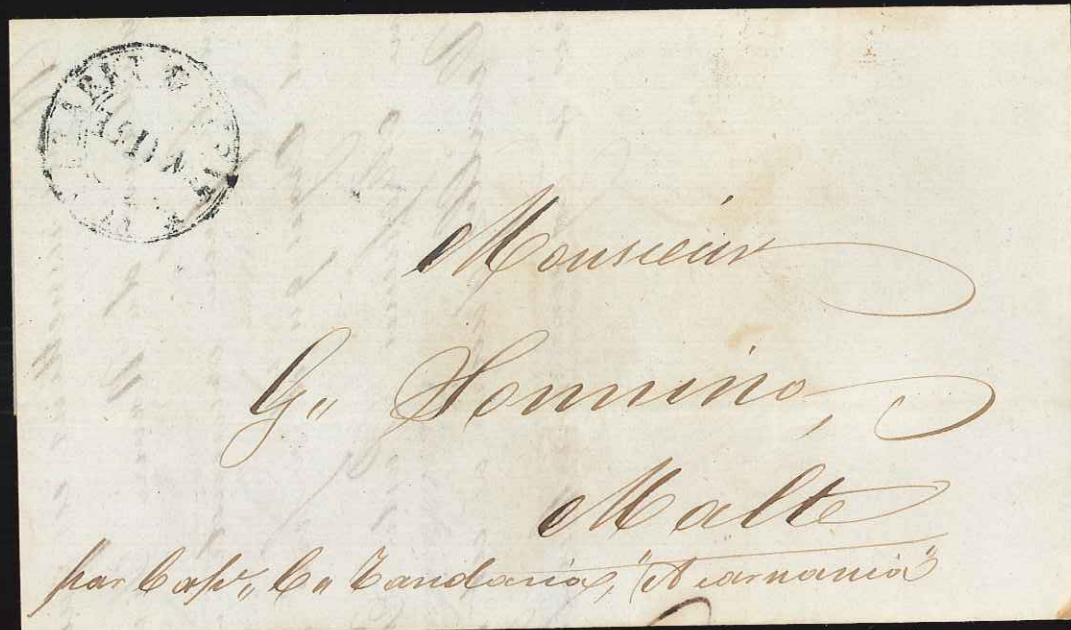 Monsieur
G,, Sonnino,
Malte
par Cap,, C,, Candaria, "Acarnania"